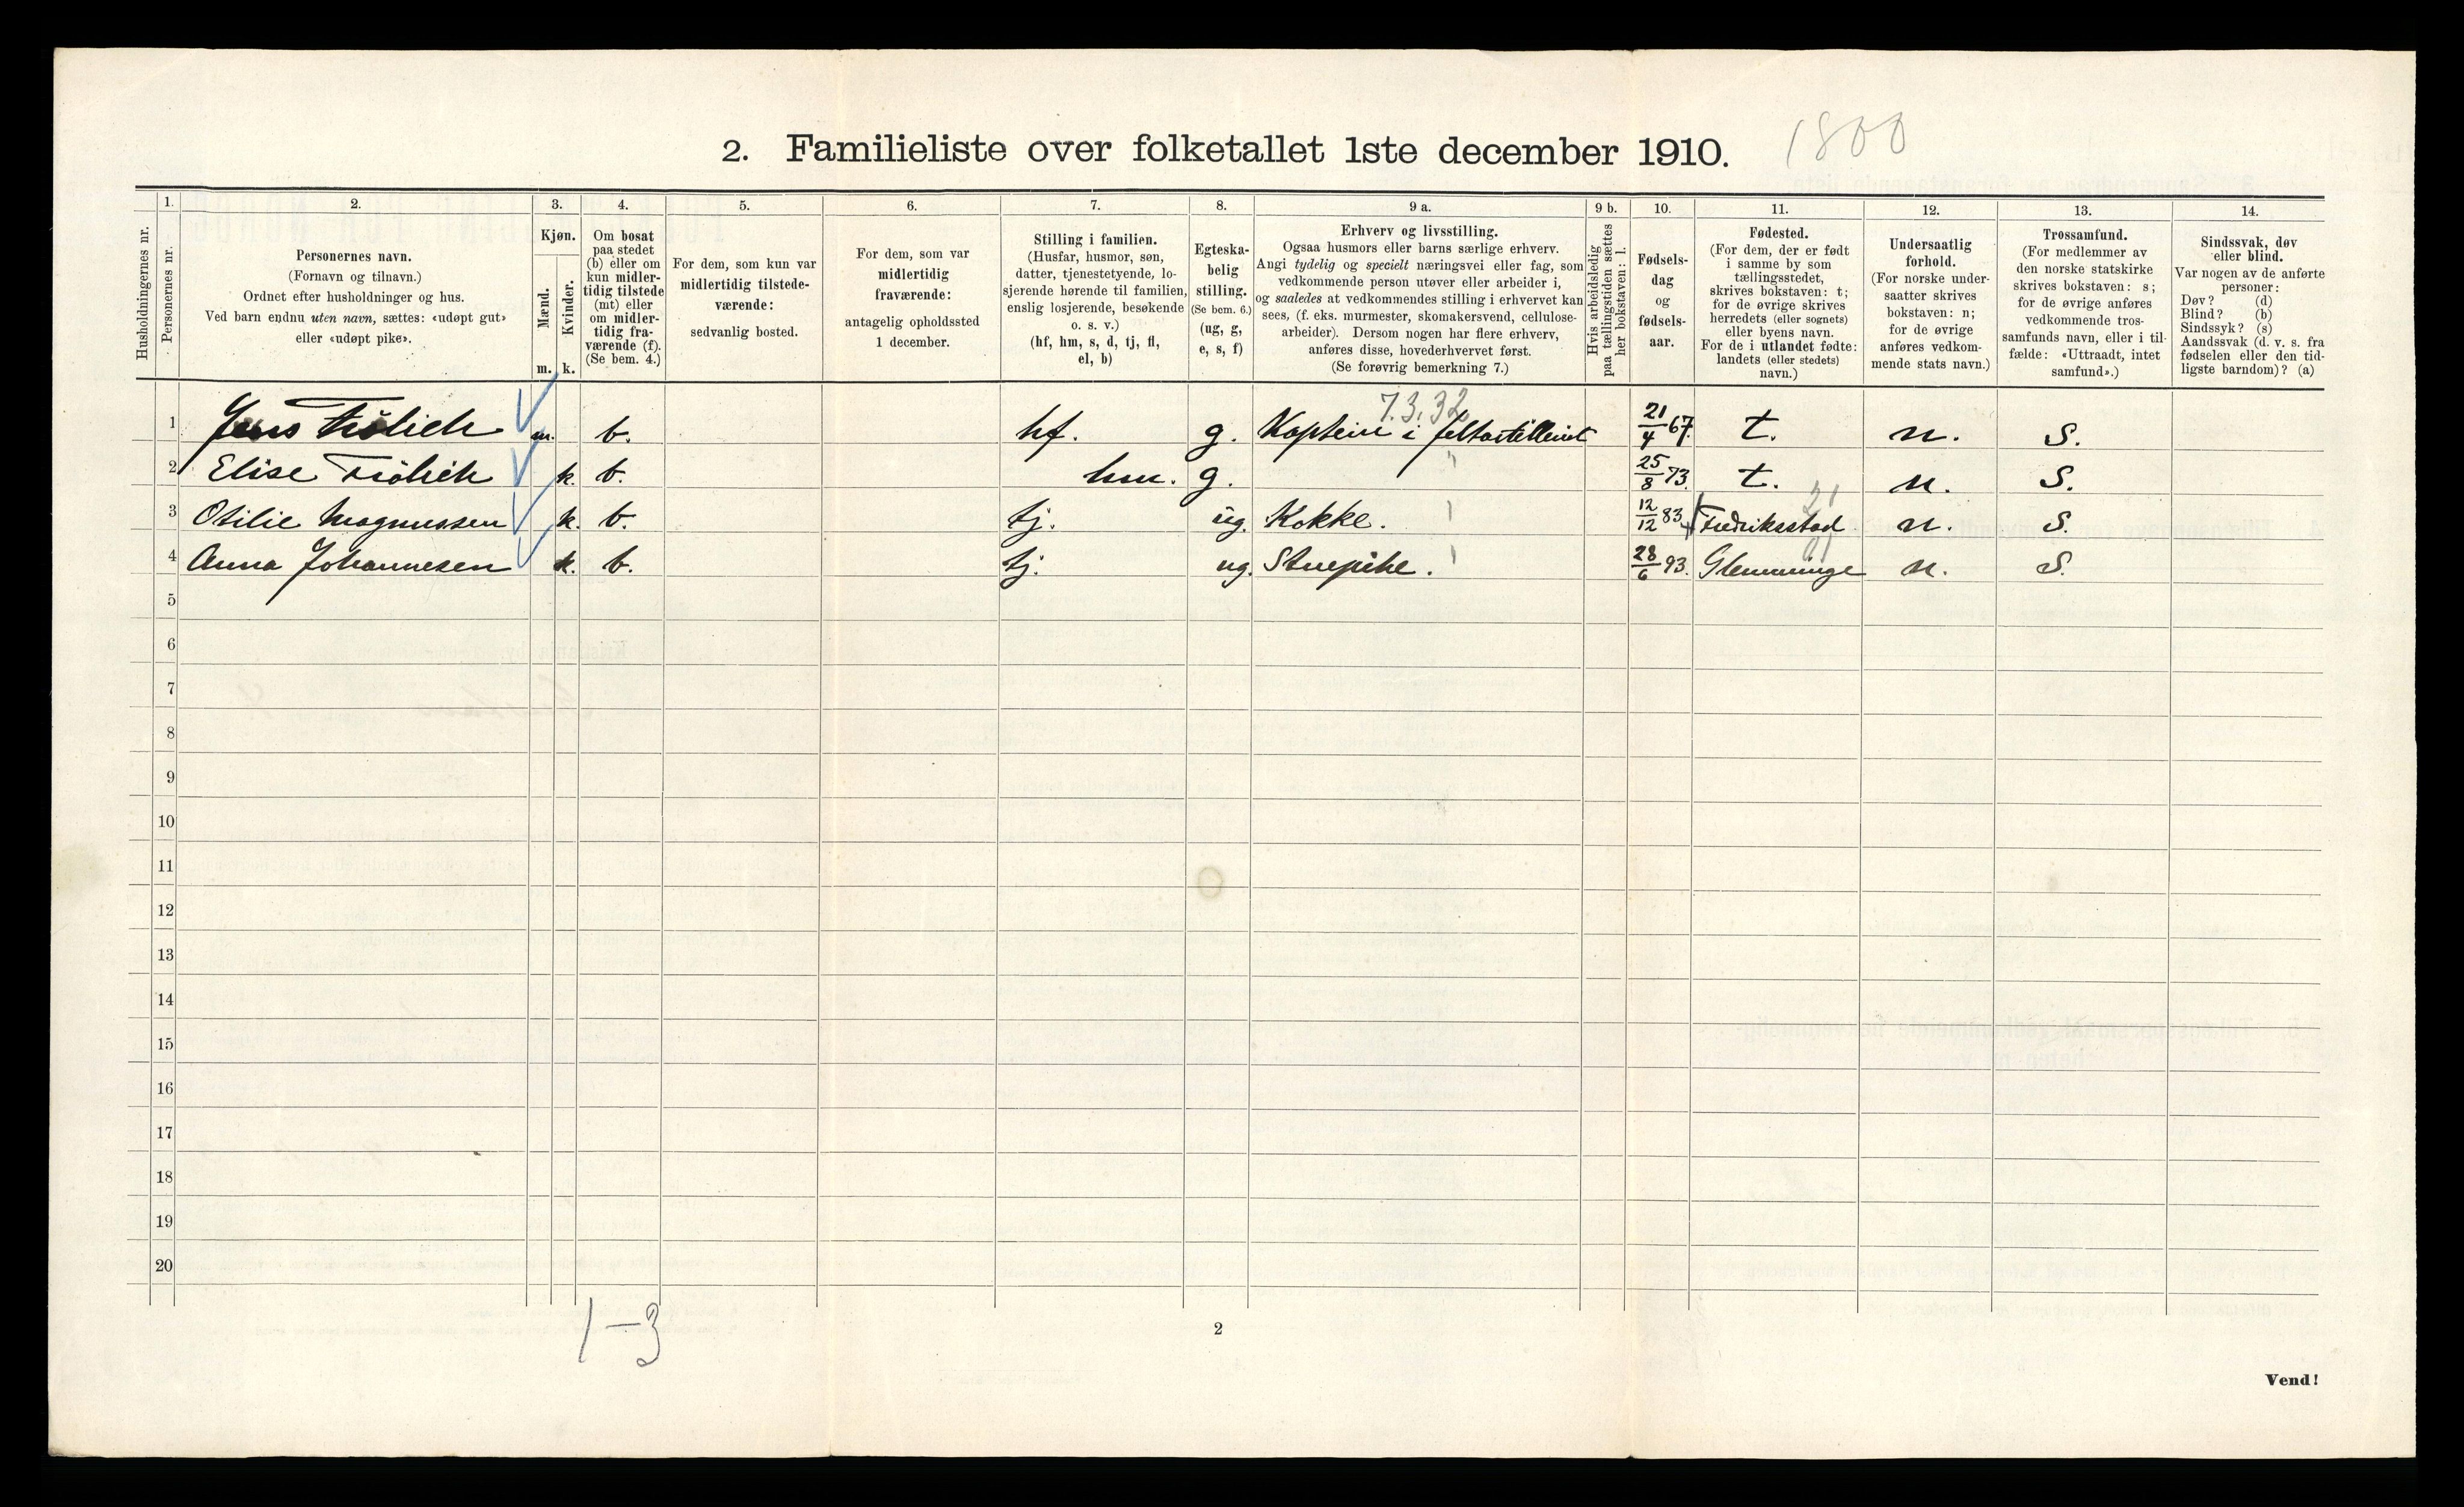 2. Familieliste over folketallet 1ste december 1910. 1800
Husholdningernes nr.
1.
Personernes nr.
2.
Personernes navn.
(Fornavn og tilnavn.)
Ordnet efter husholdninger og hus.
Ved barn endnu uten navn, sættes: «udøpt gut»
eller «udøpt pike».
3.
Kjøn.
Mænd.
Kvinder.
m. k.
4.
Om bosat
paa stedet
(b) eller om
kun midler-
tidig tilstede
(mt) eller
om midler-
tidig fra-
værende (f).
(Se bem. 4.)
5.
For dem, som kun var
midlertidig tilstede-
værende:
sedvanlig bosted.
6.
For dem, som var
midlertidig
fraværende:
antagelig opholdssted
1 december.
7.
Stilling i familien.
(Husfar, husmor, søn,
datter, tjenestetyende, lo-
sjerende hørende til familien,
enslig losjerende, besøkende
o. s. v.)
(hf, hm, s, d, tj, fl,
el, b)
8.
Egteska-
belig
stilling.
(Se bem. 6.)
(ug, g,
e, s, f)
9 a.
Erhverv og livsstilling.
Ogsaa husmors eller barns særlige erhverv.
Angi tydelig og specielt næringsvei eller fag, som
vedkommende person utøver eller arbeider i,
og saaledes at vedkommendes stilling i erhvervet kan
sees, (f. eks. murmester, skomakersvend, cellulose-
arbeider). Dersom nogen har flere erhverv,
anføres disse, hovederhvervet først.
(Se forøvrig bemerkning 7.)
9 b.
Hvis arbeidsledig
paa tællingstiden sættes
her bokstaven: l.
10.
Fødsels-
dag
og
fødsels-
aar.
11.
Fødested.
(For dem, der er født
i samme by som
tællingsstedet,
skrives bokstaven: t;
for de øvrige skrives
herredets (eller sognets)
eller byens navn.
For de i utlandet fødte:
landets (eller stedets)
navn.)
12.
Undersaatlig
forhold.
(For norske under-
saatter skrives
bokstaven: n;
for de øvrige
anføres vedkom-
mende stats navn.)
13.
Trossamfund.
(For medlemmer av
den norske statskirke
skrives bokstaven: s;
for de øvrige anføres
vedkommende tros-
samfunds navn, eller i til-
fælde: «Uttraadt, intet
samfund».)
14.
Sindssvak, døv
eller blind.
Var nogen av de anførte
personer:
Døv? (d)
Blind? (b)
Sindssyk? (s)
Aandssvak (d. v. s. fra
fødselen eller den tid-
ligste barndom)? (a)
7.3.32
1 Jens Frölich m. b. hf. g. Kaptein i feltartilleriet 21/4 67. t. n. S.
2 Elise Frölich k. b. hm. g. " 25/8 73. t. n. S.
21
3 Otilie Magnussen k. b. tj. ug. Kokke. 12/12 83 Fredriksstad n. S.
01
4 Anna Johannesen k. b. tj. ug. Stuepike. 28/6 93. Glemminge n. S.
5
6
7
8
9
10
11
12
13
14
15
16
17
18
19
20
1-3
2
Vend!